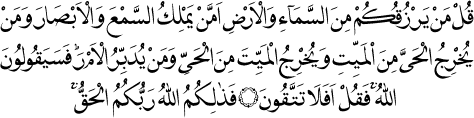 قُلْ مَنْ يَّرْزُقُكُمْ مِّنَ السَّمَآءِ وَالْاَرْضِ اَمَّنْ يَّمْلِكُ السَّمْعَ وَالْاَبْصَارَ وَمَنْ
يُّخْرِجُ الْحَىَّ مِنَ الْمَيِّتِ وَيُخْرِجُ الْمَيِّتَ مِنَ الْحَىِّ وَمَنْ يُّدَبِّرُ الْاَمْرَؕ فَسَيَقُوْلُوْنَ
اللّٰهُۚ فَقُلْ اَفَلَا تَتَّقُوْنَ ۞ فَذٰلِكُمُ اللّٰهُ رَبُّكُمُ الْحَقُّۚ